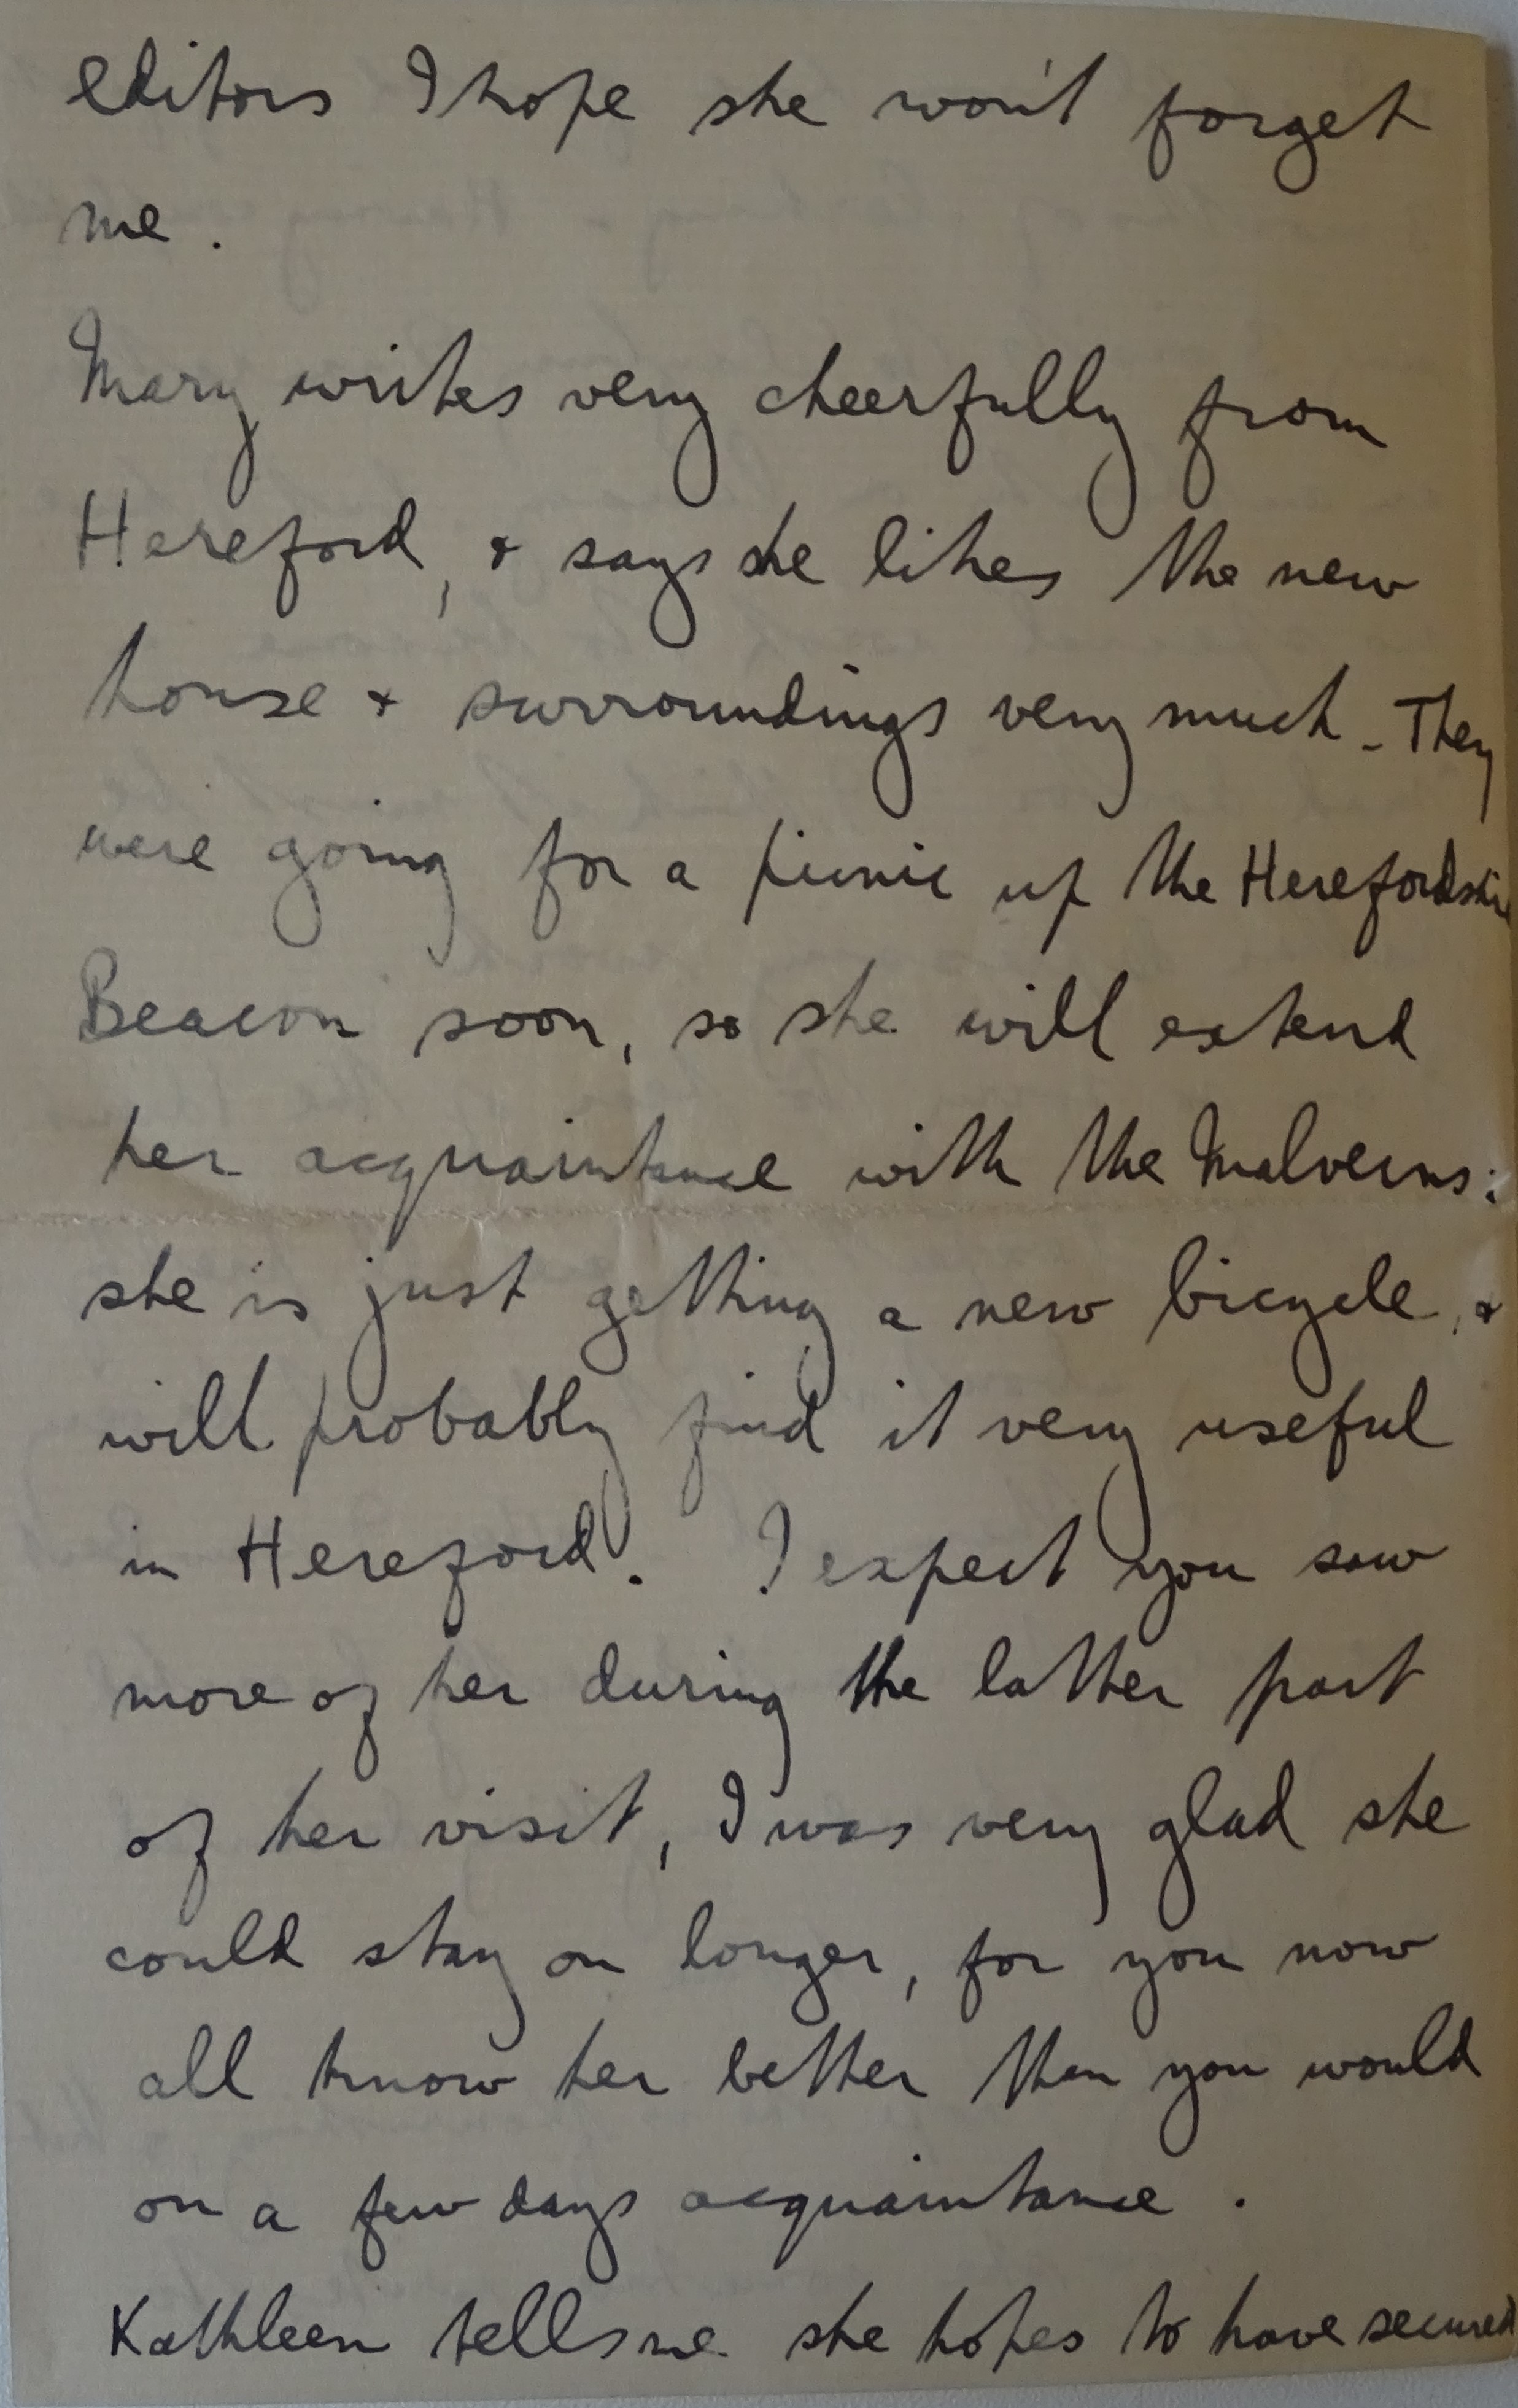 editors I hope she won't forget
me.
Mary writes very cheerfully from
Hereford, & says she likes the new
house & surroundings very much - They
were going for a picnic up the Herefordshire
Beacon soon, so she will extend
her acquaintance with the Malverns:
she is just getting a new bicycle, &
will probably find it very useful
in Hereford. I expect you saw
more of her during the latter part
of her visit, I was very glad she
could stay on longer, for you now
all know her better than you would
on a few days acquaintance.
Kathleen tells me she hopes to have secured